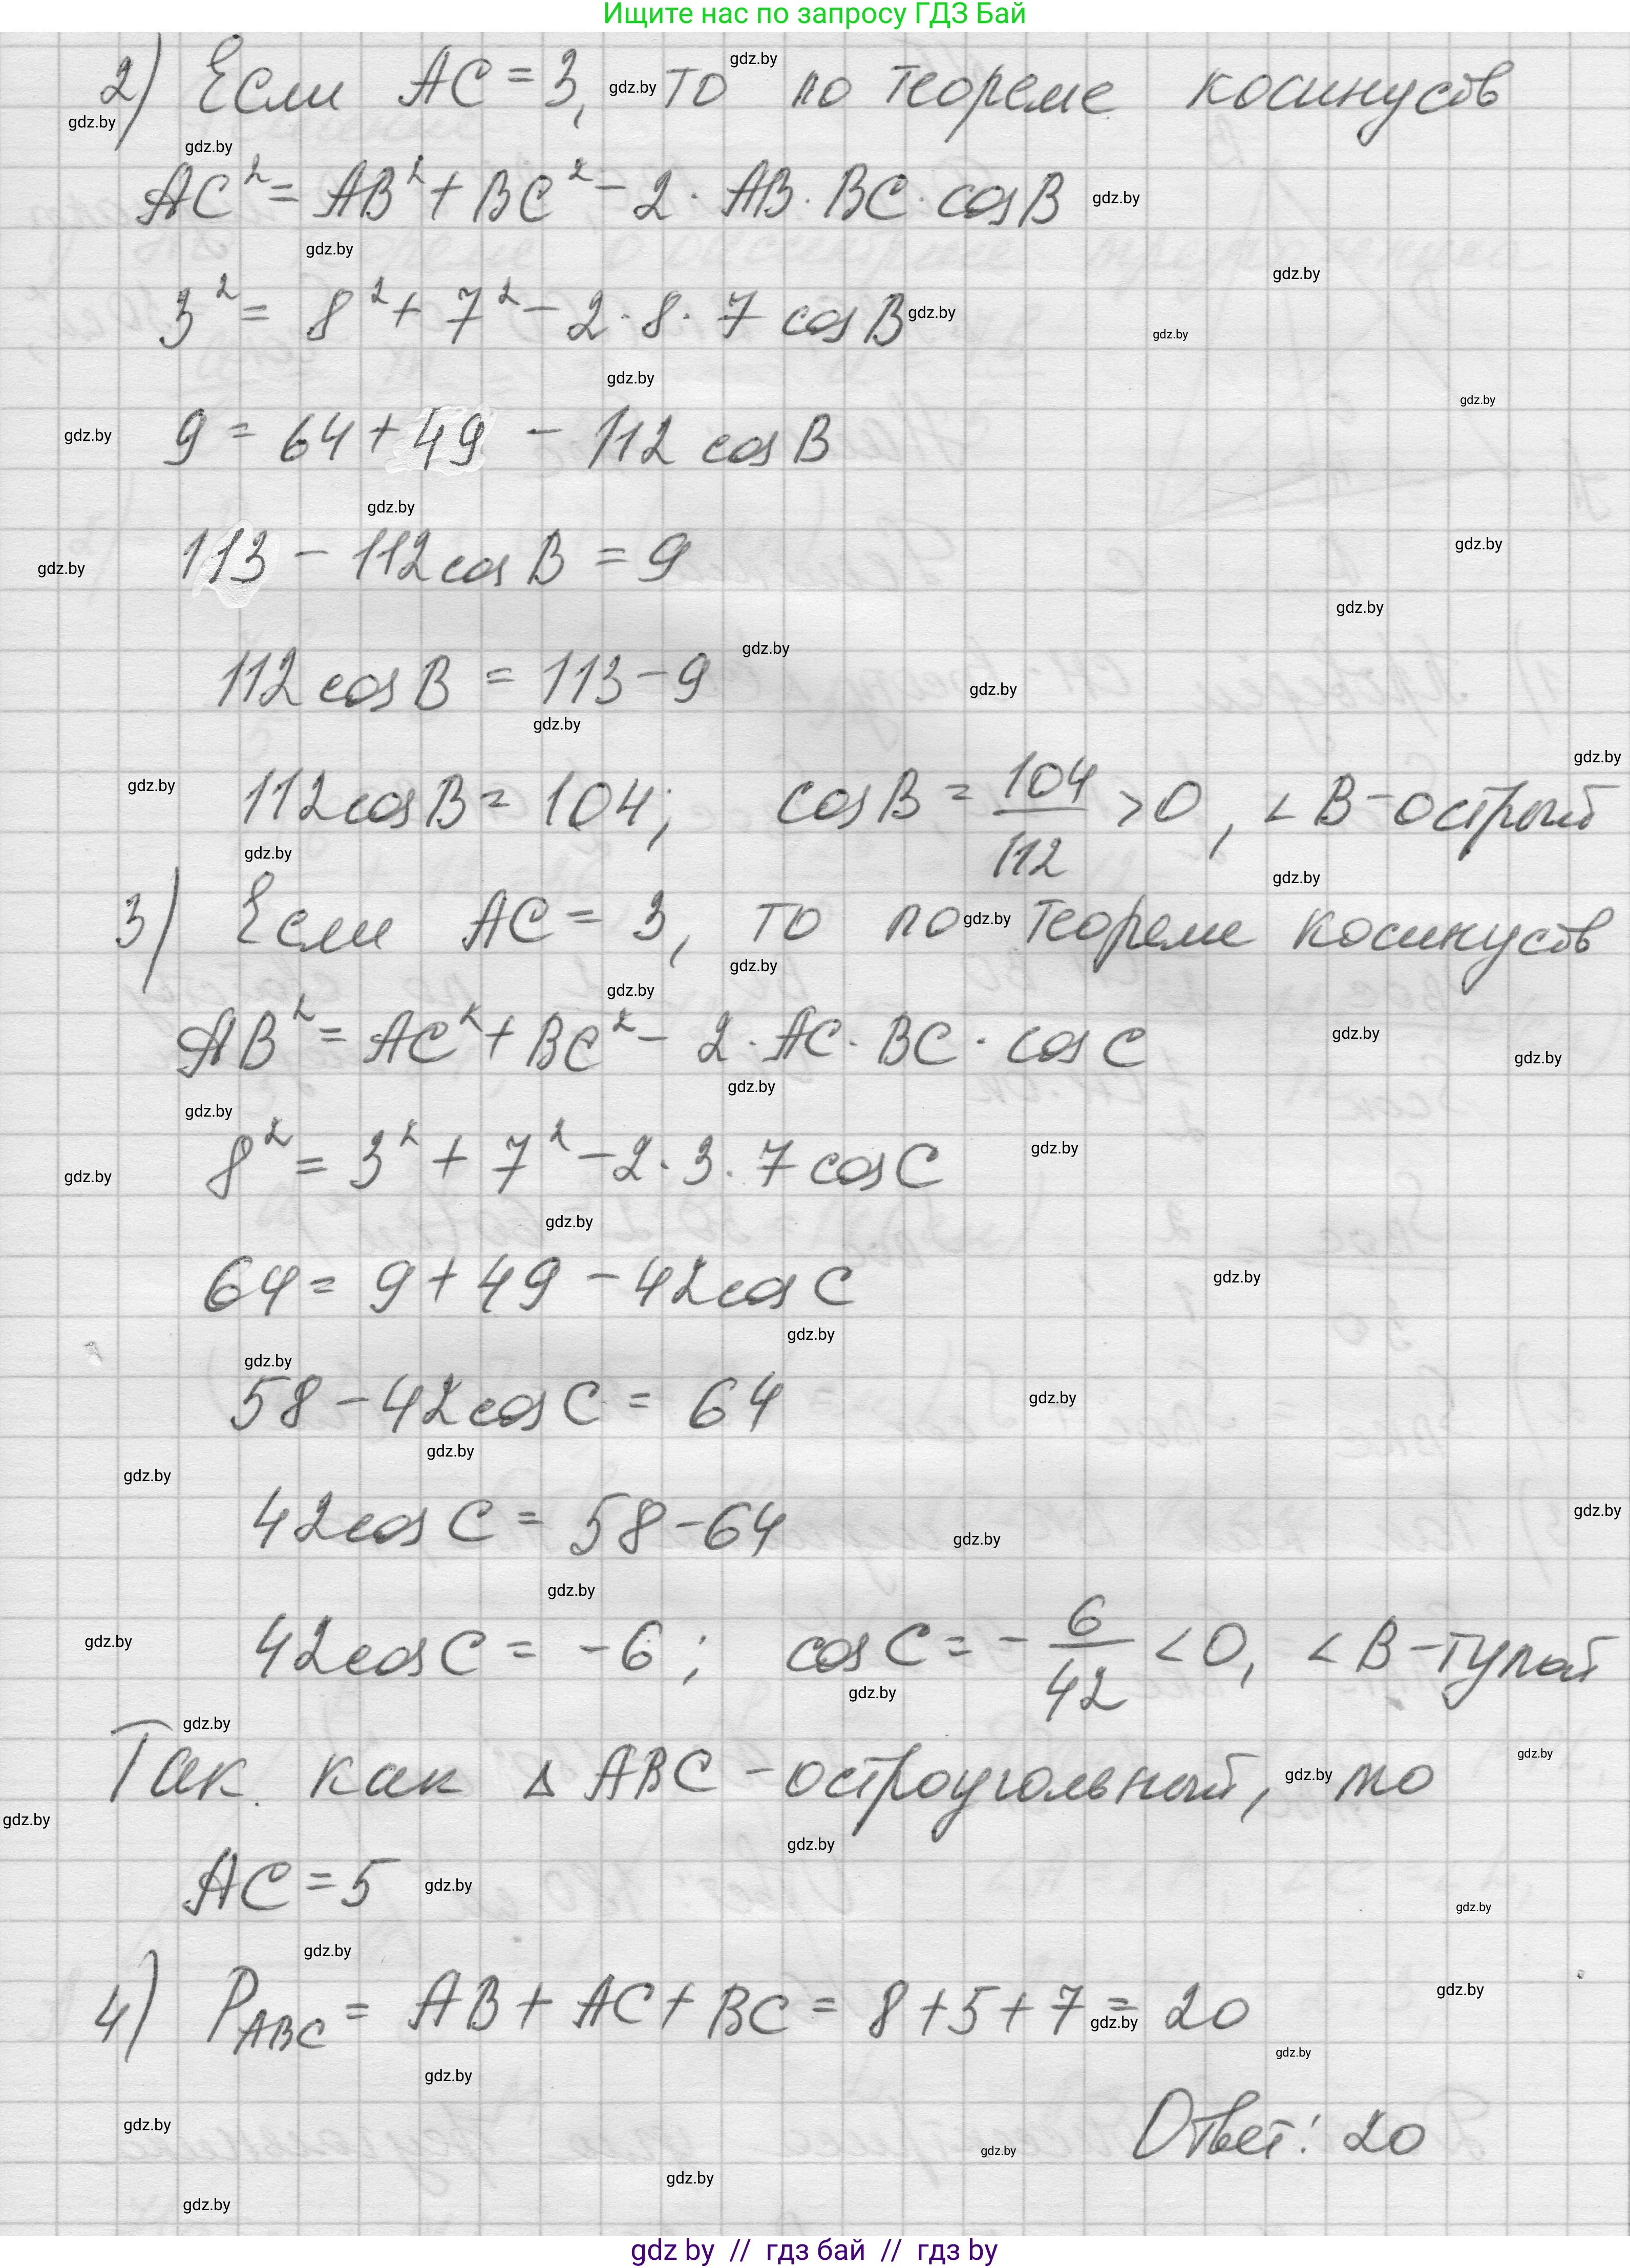 Ищите нас по запросу ГДЗ Бай
2) Если AC = 3, то по теореме косинусов
AC² = AB² + BC² - 2 · AB · BC · cos B
3² = 8² + 7² - 2 · 8 · 7 cos B
9 = 64 + 49 - 112 cos B
113 - 112 cos B = 9
112 cos B = 113 - 9
112 cos B = 104; cos B = 104/112 > 0, < B - острый
3) Если AC = 3, то по теореме косинусов
AB² = AC² + BC² - 2 · AC · BC · cos C
8² = 3² + 7² - 2 · 3 · 7 cos C
64 = 9 + 49 - 42 cos C
58 - 42 cos C = 64
42 cos C = 58 - 64
42 cos C = -6; cos C = - 6/42 < 0, < B - тупой
Так как Δ ABC - остроугольный, то
AC = 5
4) P_ABC = AB + AC + BC = 8 + 5 + 7 = 20
Ответ: 20
gdz by // гдз бай // гдз by